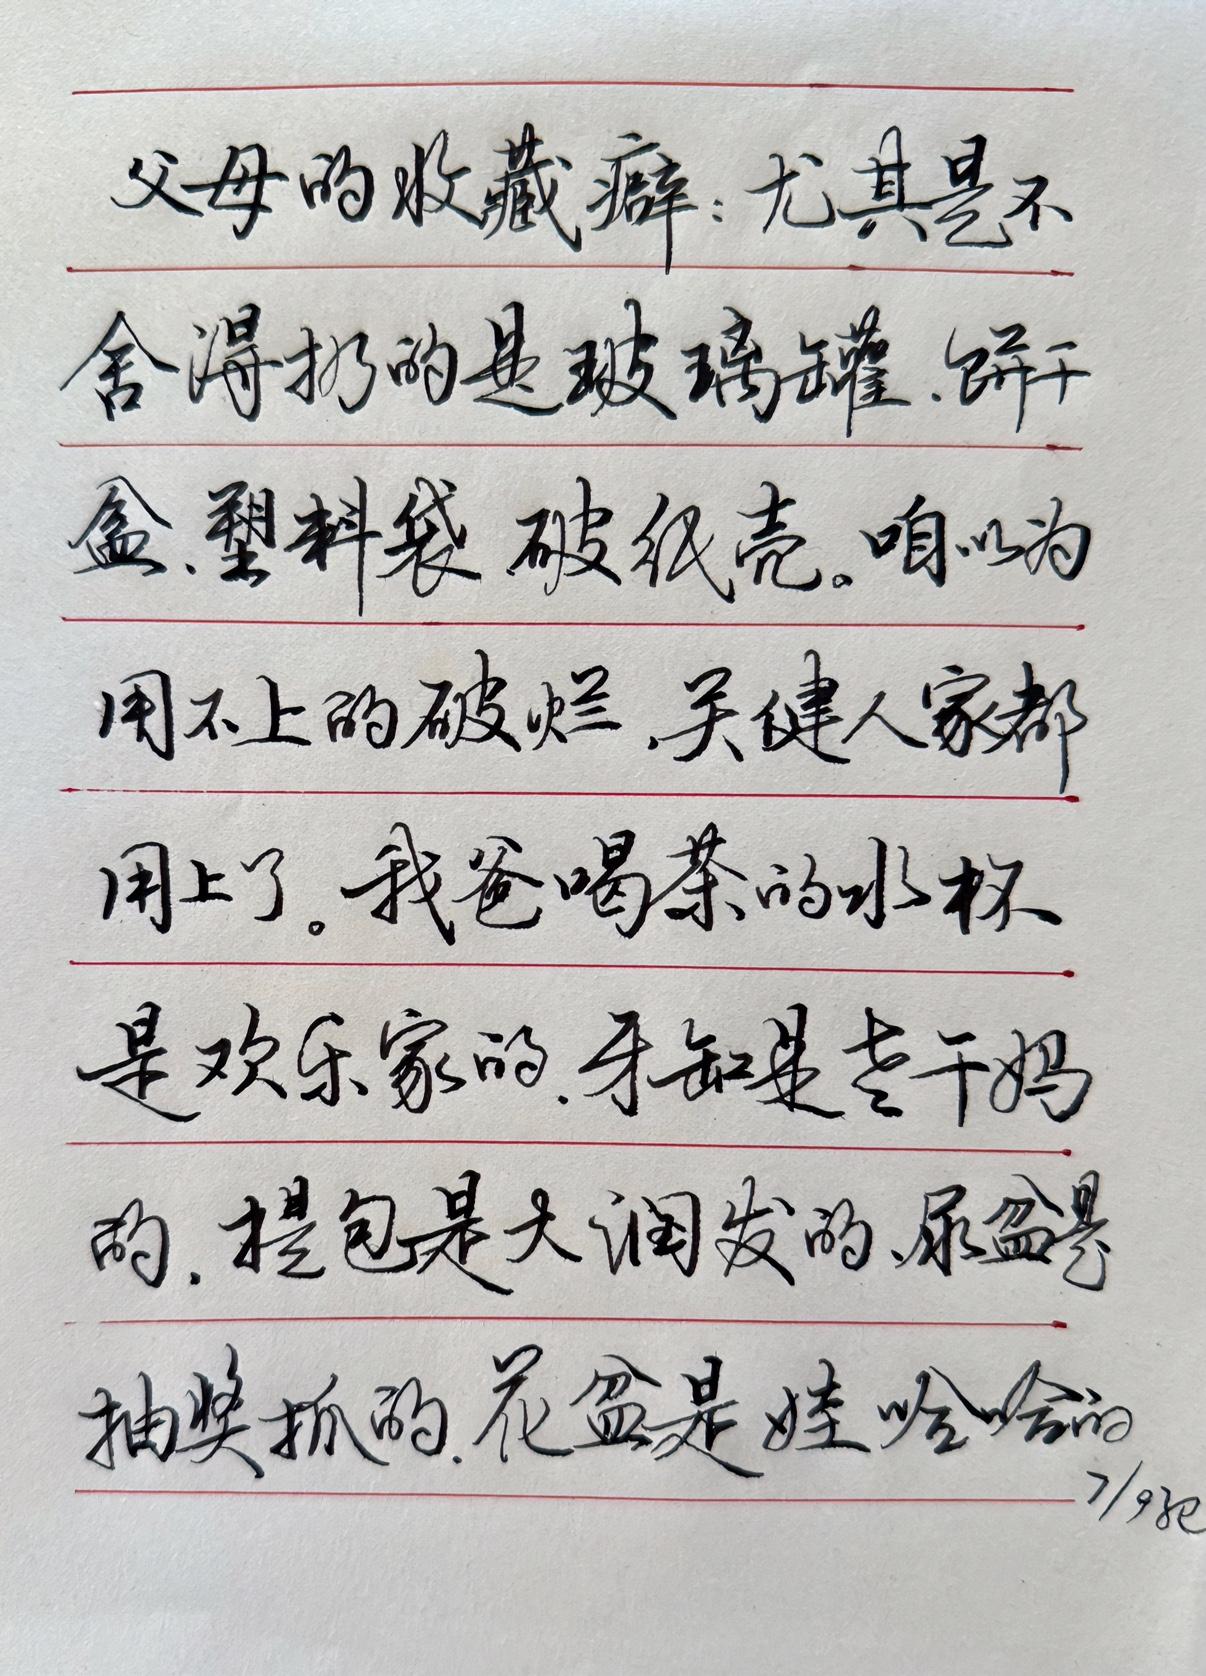 父母的收藏癖：尤其是不
舍得扔的是玻璃罐、饼干
盒、塑料袋 破纸壳。咱以为
用不上的破烂、关健人家都
用上了。我爸喝茶的水杯
是欢乐家的、牙缸是老干妈
的、提包是大润发的、尿盆是
抽奖抓的、花盆是娃哈哈的
7/9记